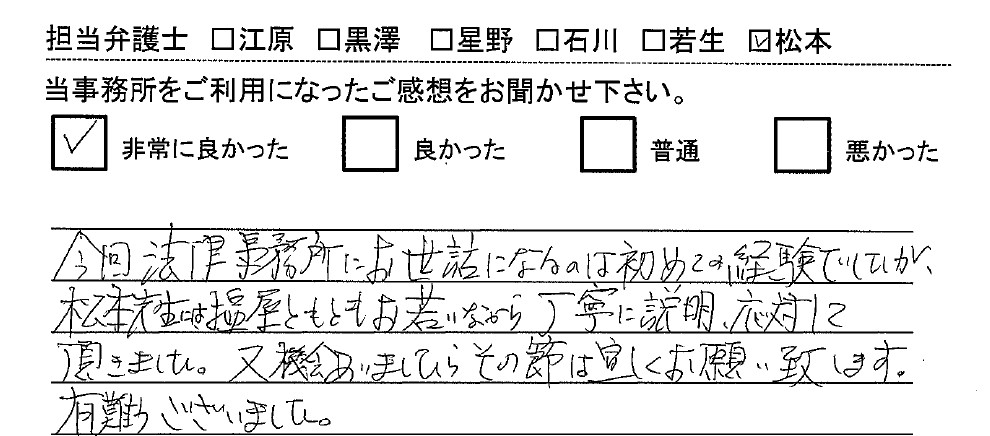 担当弁護士 □江原 □黒澤 □星野 □石川 □若生 ☑松本
当事務所をご利用になったご感想をお聞かせ下さい。
☑ 非常に良かった □ 良かった □ 普通 □ 悪かった
今回法律事務所にお世話になるのは初めての経験でしたが、
松本先生は塩屋ともともお若いながら丁寧に説明、応対して
頂きました。又機会ありましたらその節は宜しくお願い致します。
有難うございました。